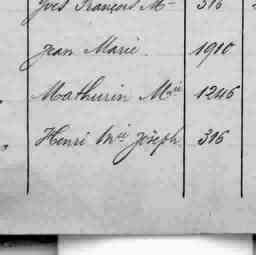 Yves François M^ie 316
Jean Marie 1910
Mathurin M^ie 1246
Henri M^ie Joseph 316